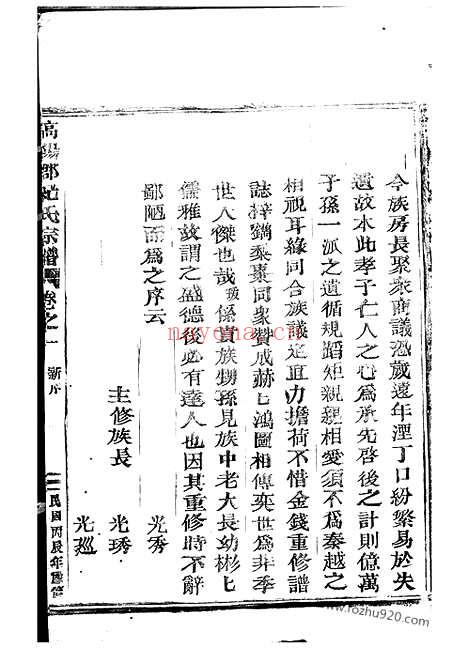 今族房長聚衆商議恐歲遠年湮丁口紛繁易於失
遺故本此孝子仁人之心爲承先啓後之計則億萬
子孫一派之遺循規蹈矩親親相愛須不爲秦越之
相視耳緣同合族議定直力擔荷不惜金錢重修譜
誌梓鐫棗同衆贊成赫匕鴻圖相傳奕世爲非季
世人傑也哉敝係貴族甥孫見族中老大長幼彬匕
儒雅故謂之盛德後必有達人也因其重修時不辭
鄙陋而爲之序云
光秀
主修族長 光琇
光廵
高陽郡 氏宗譜 卷之一 新序
民國丙辰年重修
nayona.cn
www.fozhu920.com